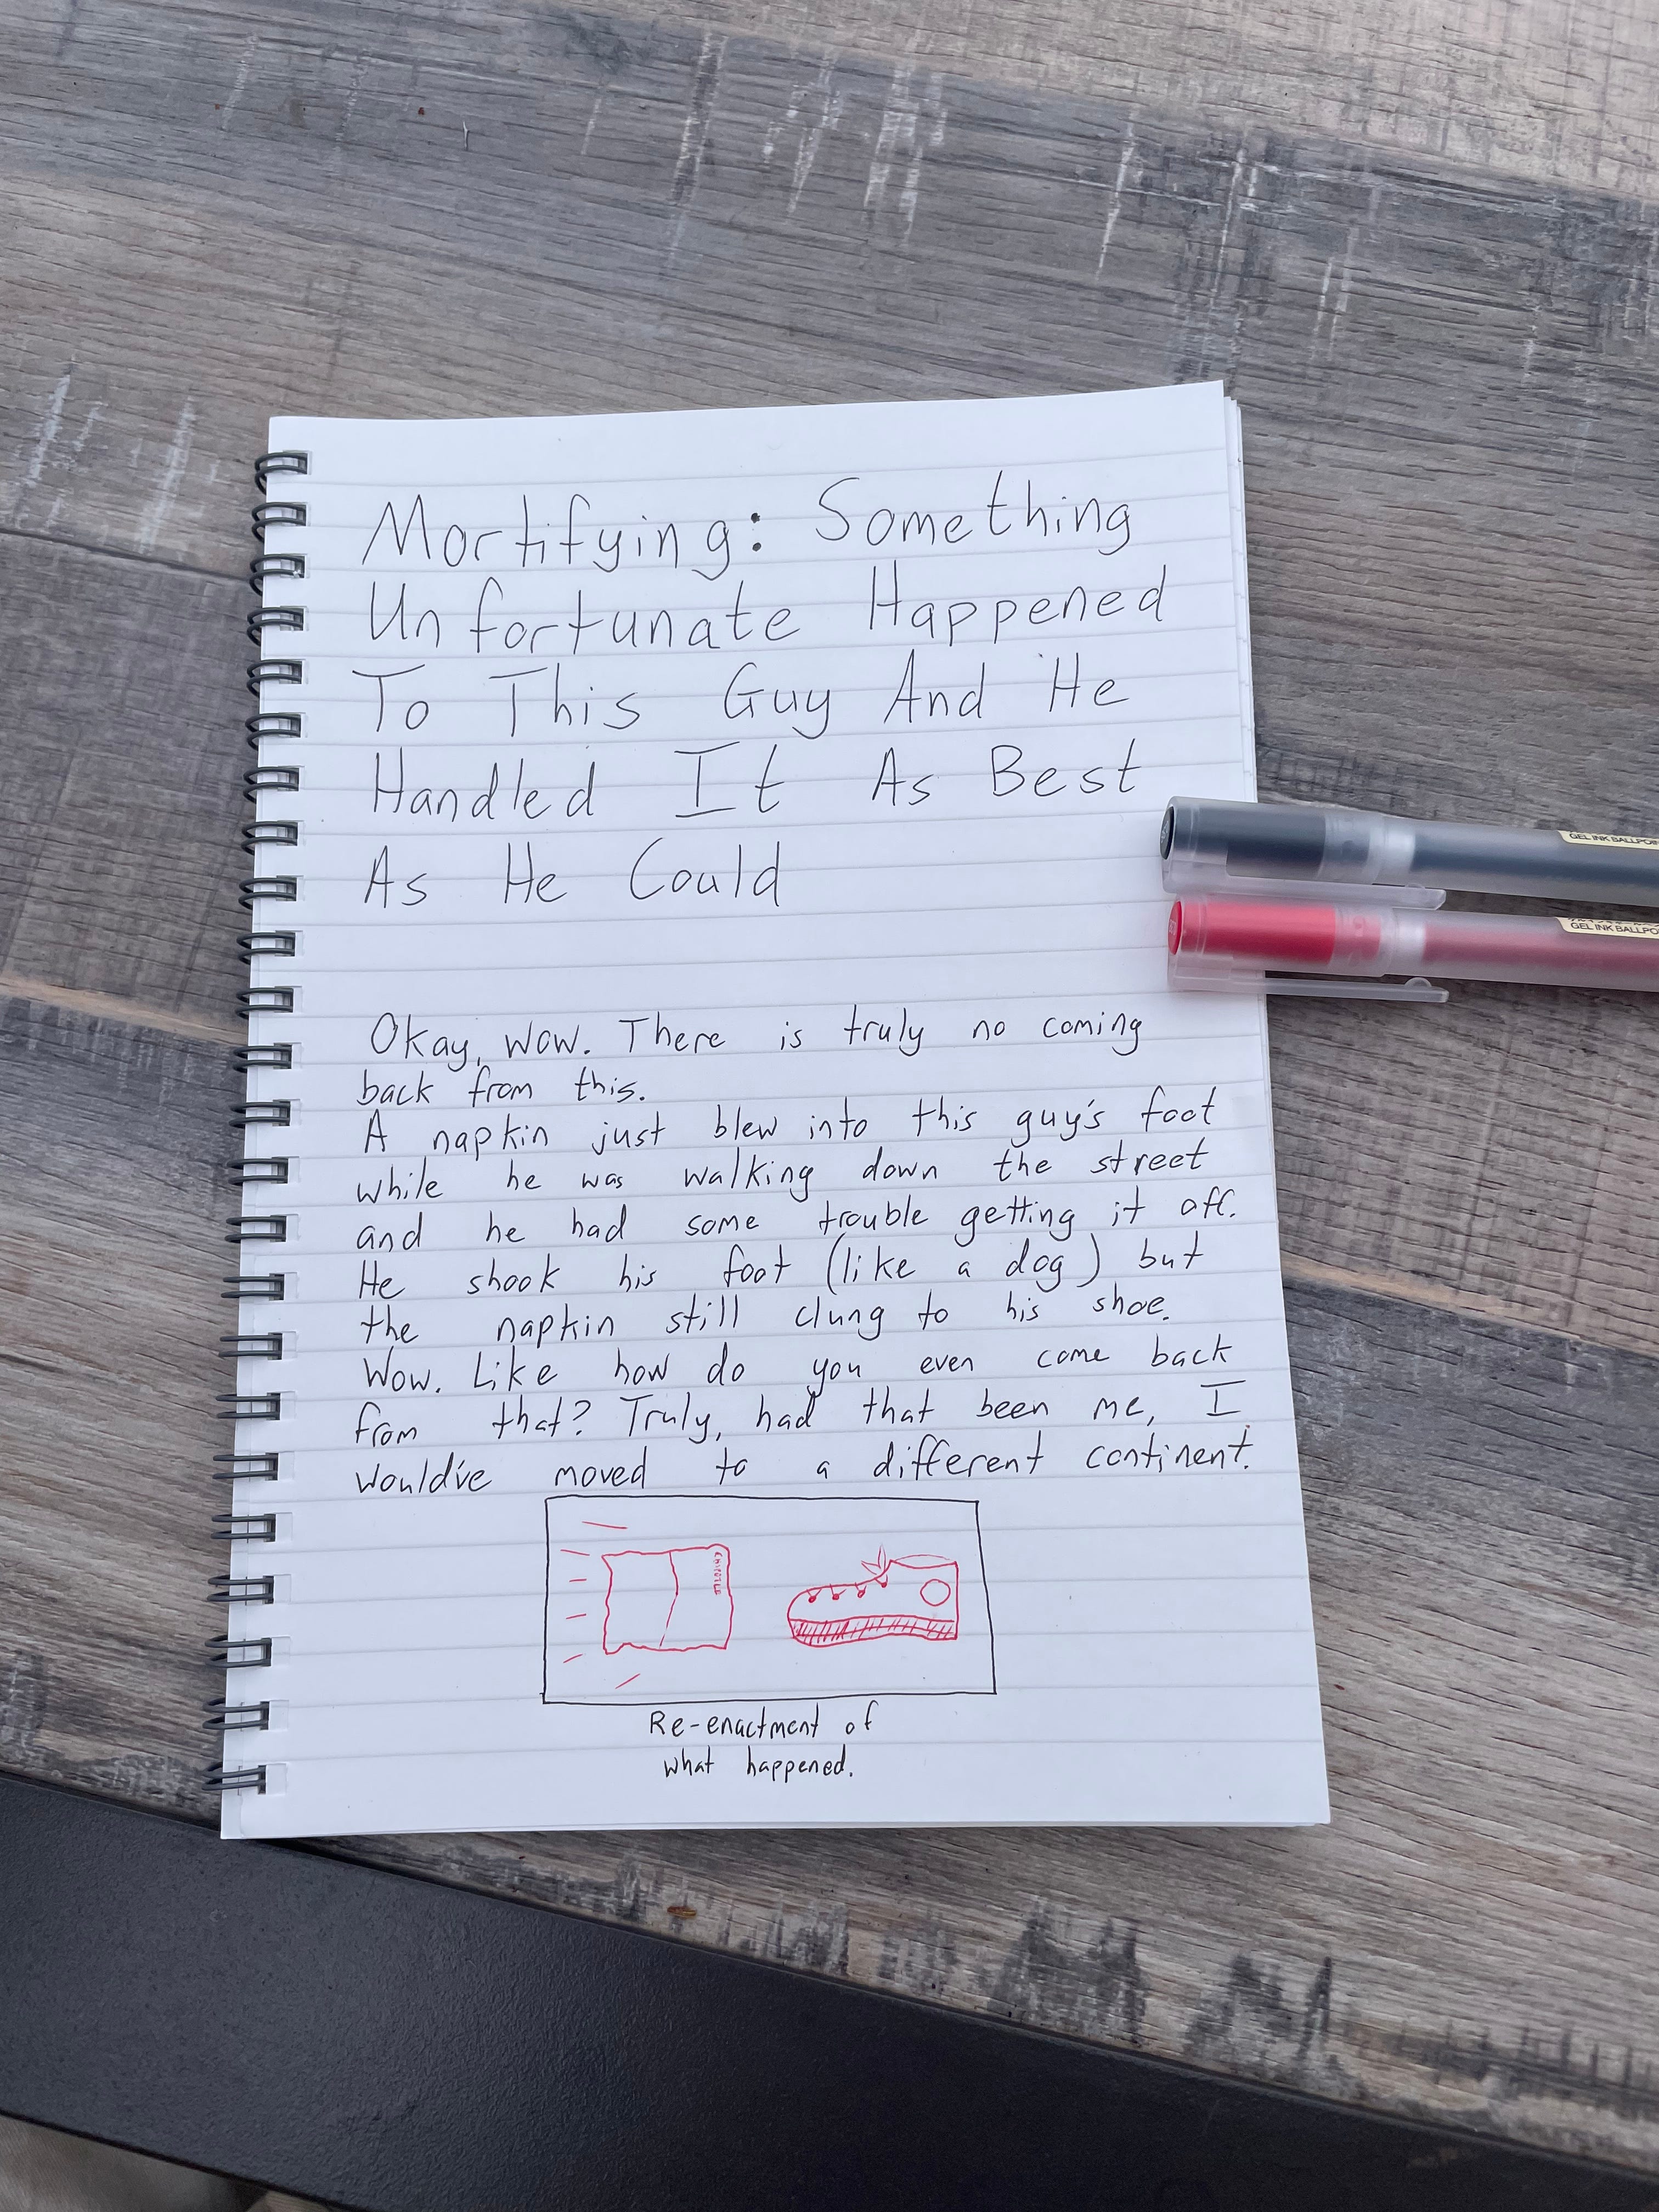 Mortifying: Something
Unfortunate Happened
To This Guy And He
Handled It As Best
As He Could
Okay, wow. There is truly no coming
back from this.
A napkin just blew into this guy's foot
while he was walking down the street
and he had some trouble getting it off.
He shook his foot (like a dog) but
the napkin still clung to his shoe.
Wow. Like how do you even come back
from that? Truly, had that been me, I
would've moved to a different continent.
CHIPOTLE
Re-enactment of
what happened.
GEL INK BALLPOIN
GEL INK BALLPO